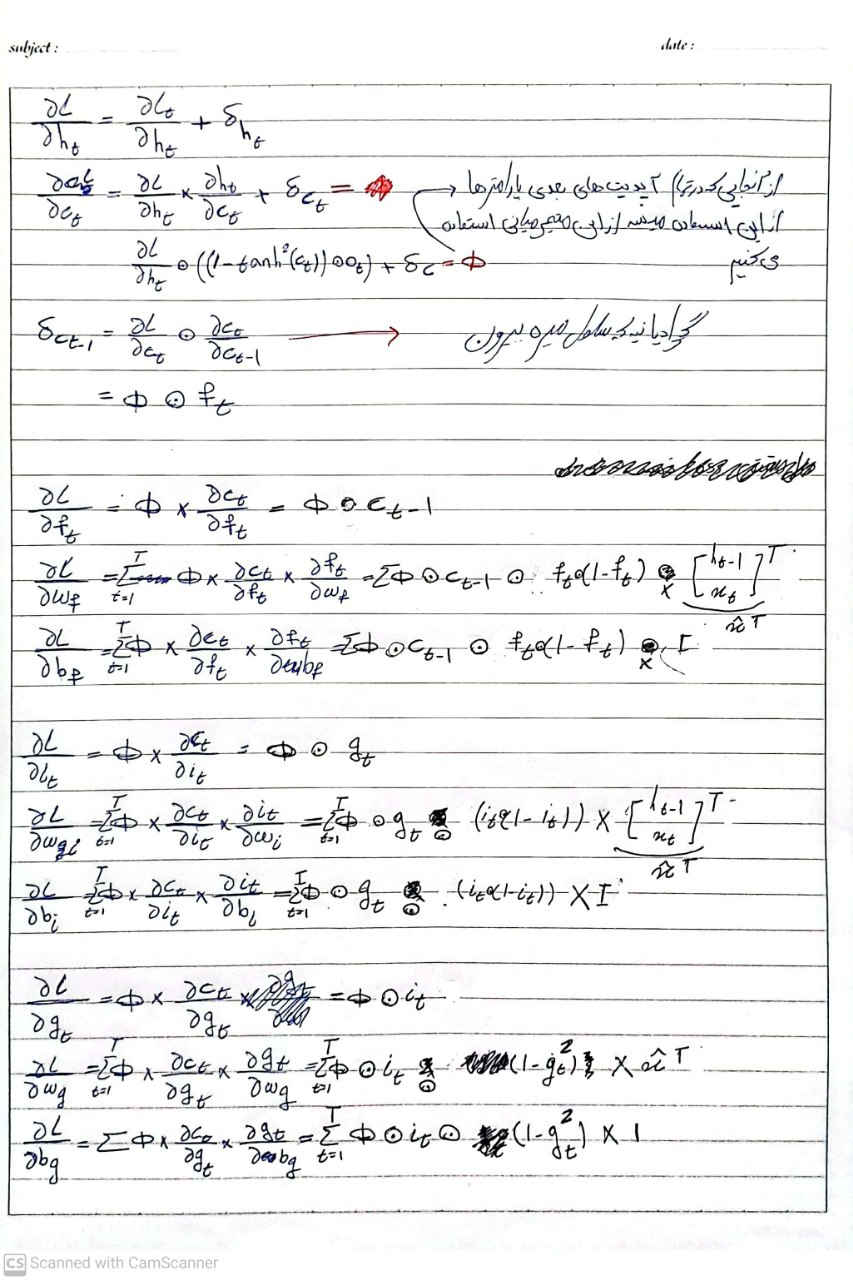 subject : date :
∂L/∂h_t = ∂L_t/∂h_t + δ_{h_t}
∂L/∂c_t = ∂L/∂h_t × ∂h_t/∂c_t + δ_{c_t} =
از آنجایی که در تمام آپدیت های بعدی پارامترها
از این استفاده میشه از این متغیر میانی استفاده
می کنیم
∂L/∂h_t ⊙ ((1 - tanh²(c_t)) ⊙ o_t) + δ_c = Φ
δ_{c_{t-1}} = ∂L/∂c_t ⊙ ∂c_t/∂c_{t-1} → گرادیانیه که سلول میره بیرون
= Φ ⊙ f_t
∂L/∂f_t = Φ × ∂c_t/∂f_t = Φ ⊙ c_{t-1}
∂L/∂w_f = Σ_{t=1}^{T} Φ × ∂c_t/∂f_t × ∂f_t/∂w_f = Σ Φ ⊙ c_{t-1} ⊙ f_t(1 - f_t) × [h_{t-1} x_t]^T
x̂^T
∂L/∂b_f = Σ_{t=1}^{T} Φ × ∂c_t/∂f_t × ∂f_t/∂b_f = Σ Φ ⊙ c_{t-1} ⊙ f_t(1 - f_t) × I
∂L/∂i_t = Φ × ∂c_t/∂i_t = Φ ⊙ g_t
∂L/∂w_i = Σ_{t=1}^{T} Φ × ∂c_t/∂i_t × ∂i_t/∂w_i = Σ_{t=1}^{T} Φ ⊙ g_t ⊙ (i_t(1 - i_t)) × [h_{t-1} x_t]^T
x̂^T
∂L/∂b_i = Σ_{t=1}^{T} Φ × ∂c_t/∂i_t × ∂i_t/∂b_i = Σ_{t=1}^{T} Φ ⊙ g_t ⊙ (i_t(1 - i_t)) × I
∂L/∂g_t = Φ × ∂c_t/∂g_t = Φ ⊙ i_t
∂L/∂w_g = Σ_{t=1}^{T} Φ × ∂c_t/∂g_t × ∂g_t/∂w_g = Σ_{t=1}^{T} Φ ⊙ i_t ⊙ (1 - g_t²) × x̂^T
∂L/∂b_g = Σ Φ × ∂c_t/∂g_t × ∂g_t/∂b_g = Σ_{t=1}^{T} Φ ⊙ i_t ⊙ (1 - g_t²) × 1
CS Scanned with CamScanner